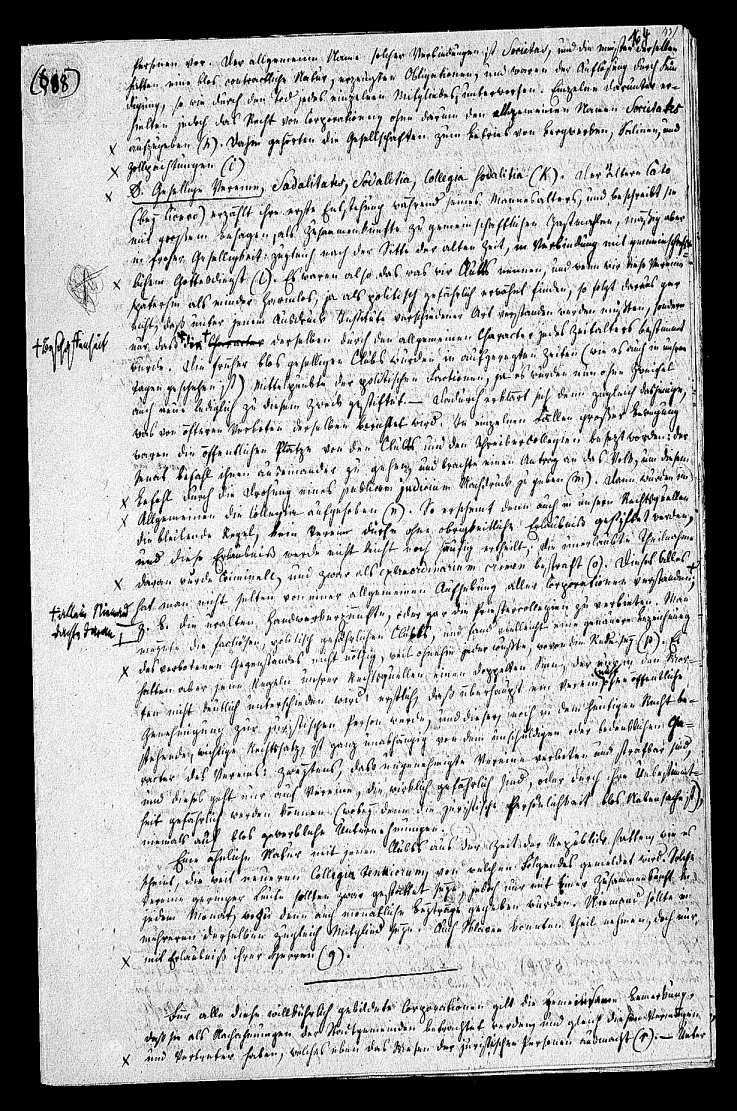 104
(888)
Personen vor. Der allgemeine Name solcher Verbindungen ist Societas, und die meisten derselben
hatten eine blos contractliche Natur, erzeugten Obligationen, und waren der Auflösung durch Kün-
digung, so wie durch den Tod jedes einzelnen Mitgliedes, unterworfen. Einzelne darunter er-
hielten jedoch das Recht von Corporationen, ohne darum den allgemeinen Namen Societates
aufzugeben (h). Dahin gehörten die Gesellschaften zum Betrieb von Bergwerken, Salinen, und
Zollpachtungen (i)
D. Gesellige Vereine, Sodalitates, Sodalitia, Collegia sodalitia (k). Der ältere Cato
(bey Cicero) erzählt ihre erste Entstehung während seines Mannesalters, und beschreibt sie
mit großem Behagen, als Zusammenkünfte zu gemeinschaftlichen Gastmahlen, mäßig aber
in froher Geselligkeit: zugleich nach der Sitte der alten Zeit, in Verbindung mit gemeinschaft-
lichem Gottesdienst (l). Es waren also das was wir Clubbs nennen, und wenn wir diese Vereine
späterhin als minder harmlos, ja als politisch gefährlich erwähnt finden, so folgt daraus gar
nicht, daß unter jenem Ausdruck Institute verschiedener Art verstanden werden müßten, sondern
nur daß die + derselben durch den allgemeinen Character jedes Zeitalters bestimmt
+ Beschaffenheit
wurde. Die früher blos geselligen Clubbs wurden in aufgeregten Zeiten (wie es auch in unsren
Tagen geschehen ist) Mittelpunkte der politischen Factionen, ja es wurden nun ohne Zweifel
auch neue lediglich zu diesem Zweck gestiftet. — Dadurch erklärt sich denn zugleich dasjenige,
was von öfteren Verboten derselben berichtet wird. In einzelnen Fällen großer Bewegung
waren die öffentlichen Plätze von den Clubbs und den Schreibercollegien besetzt worden: der
Senat befahl ihnen auseinander zu gehen, und brachte einen Antrag an das Volk, um diesem
Befehl durch die Drohung eines publicum judicium Nachdruck zu geben (m). Dann wurden im
Allgemeinen die Collegia aufgehoben (n). So erscheint denn auch in unsern Rechtsquellen
die bleibende Regel, kein Verein dürfe ohne obrigkeitliche Erlaubniß gestiftet werden,
und diese Erlaubniß werde nicht leicht noch häufig ertheilt; die unerlaubte Theilnahme
daran wurde criminell, und zwar als extraordinarium crimen bestraft (o). Dieses alles
hat man nicht selten von einer allgemeinen Aufhebung aller Corporationen verstanden; +
+ allein Niemand
dachte daran
z. B. die uralten Handwerkerzünfte, oder gar die Priestercollegien zu verbieten. Man
meynte die factiösen, politisch gefährlichen Clubbs, und fand vielleicht eine genauere Bezeichnung
des verbotenen Gegenstandes nicht nöthig, weil ohnehin jeder wußte, wovon die Rede sey (p). Es
halten aber jene Regeln unsrer Rechtsquellen einen doppelten Sinn, der in den Wor-
ten nicht deutlich unterschieden wird: erstlich, daß überhaupt ein Verein ohne öffentliche
Genehmigung zur juristischen Person werde, und dieser, noch in dem heutigen Recht be-
stehende, wichtige Rechtssatz, ist ganz unabhängig von dem unschuldigen oder bedenklichen Cha-
racter des Vereins: zweytens, daß nicht genehmigte Vereine verboten und strafbar sind,
und dieses geht nur auf Vereine, die wirklich gefährlich sind, oder durch ihre Unbestimmt-
heit gefährlich werden können (wobey denn die juristische Persönlichkeit blos Nebensache ist),
niemals auf blos gewerbliche Unternehmungen.
Eine ähnliche Natur mit jenen Clubbs aus der Zeit der Republik hatten, wie es
scheint, die weit neueren Collegia tenuiorum, von welchen Folgendes gemeldet wird. Solche
Vereine geringer Leute sollten zwar gestattet seyn, jedoch nur mit Einer Zusammenkunft in
jedem Monat, wozu denn auch monatliche Beyträge gegeben wurden. Niemand sollte in
mehreren derselben zugleich Mitglied seyn. Auch Sklaven konnten Theil nehmen, doch nur
mit Erlaubniß ihrer Herren (q).
Für alle diese willkührlich gebildete Corporationen gilt die gemeinsame Bemerkung,
daß sie als Nachahmungen der Stadtgemeinden betrachtet werden, und gleich diesen Vermögen
und Vertreter haben, welches eben das Wesen der juristischen Personen ausmacht (r). — Unter